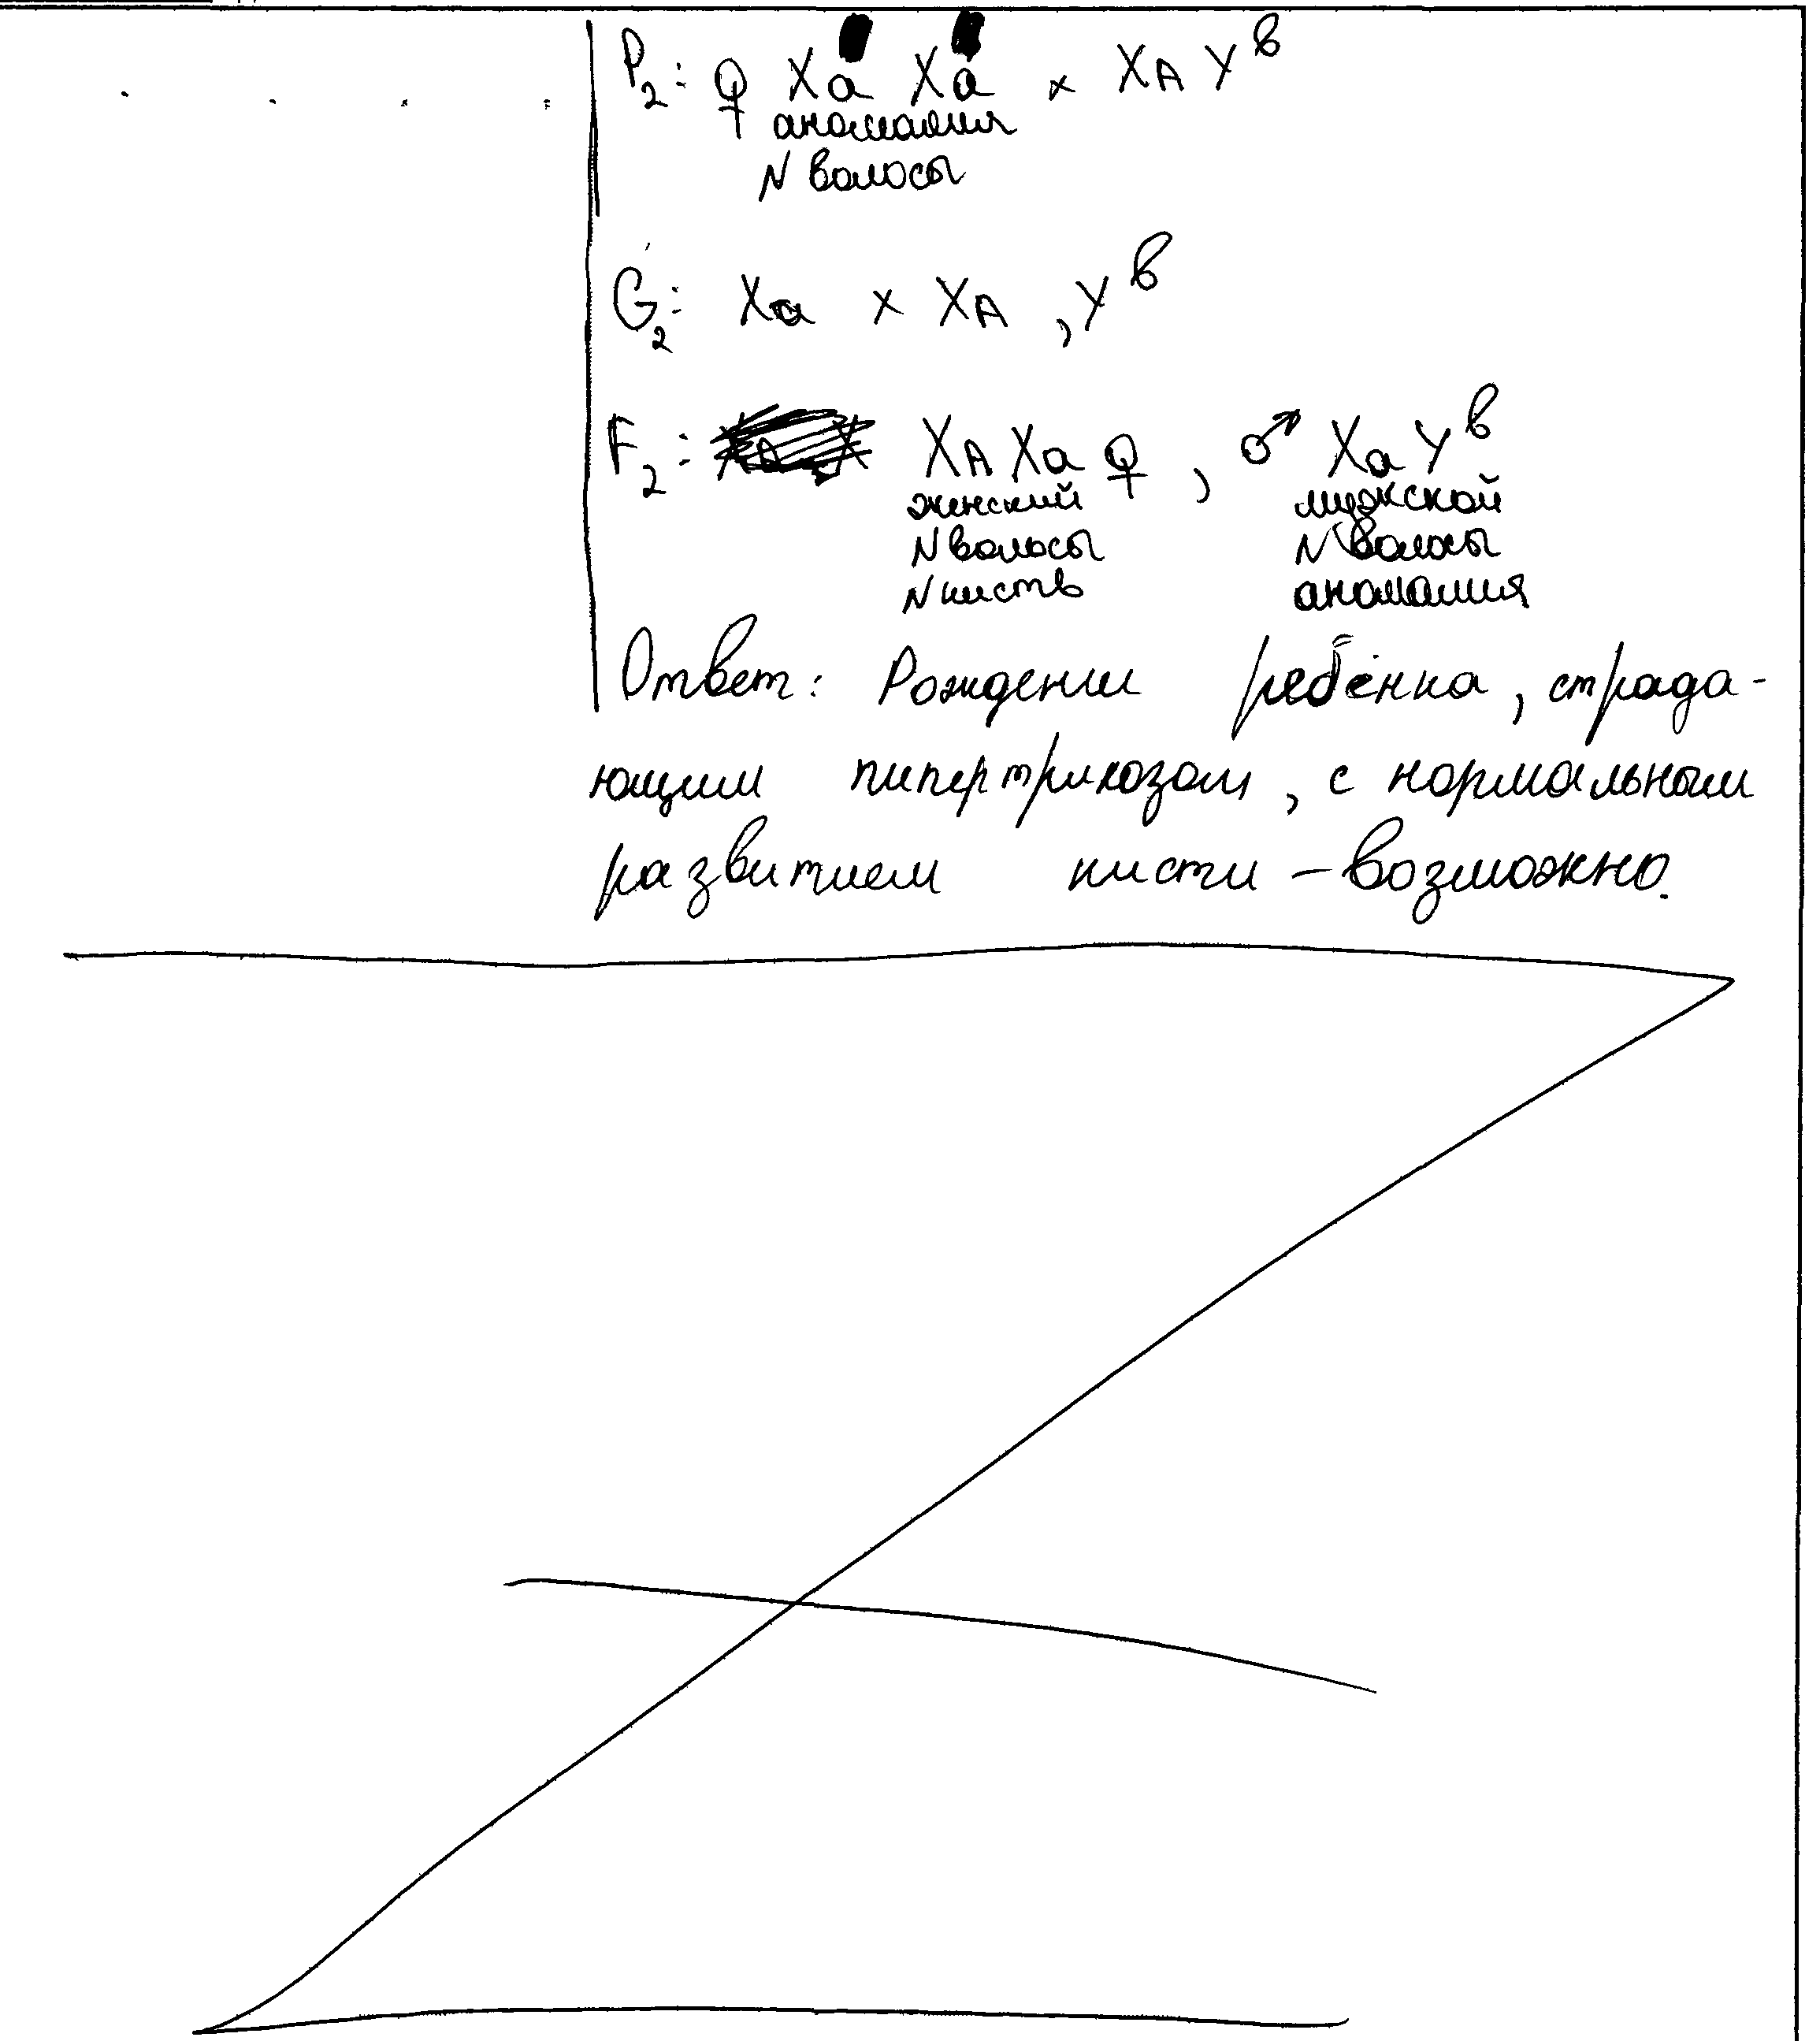 P₂: ♀ Xa Xa × XA Yᵇ
аномалия
N волосы
G₂: Xa × XA , Yᵇ
F₂: XA Xa ♀ , ♂ Xa Yᵇ
женский мужской
N волосы N волосы
N кисть аномалия
Ответ: Рождении ребёнка, страда-
ющим гипертрихозом, с нормальным
развитием кисти – возможно.